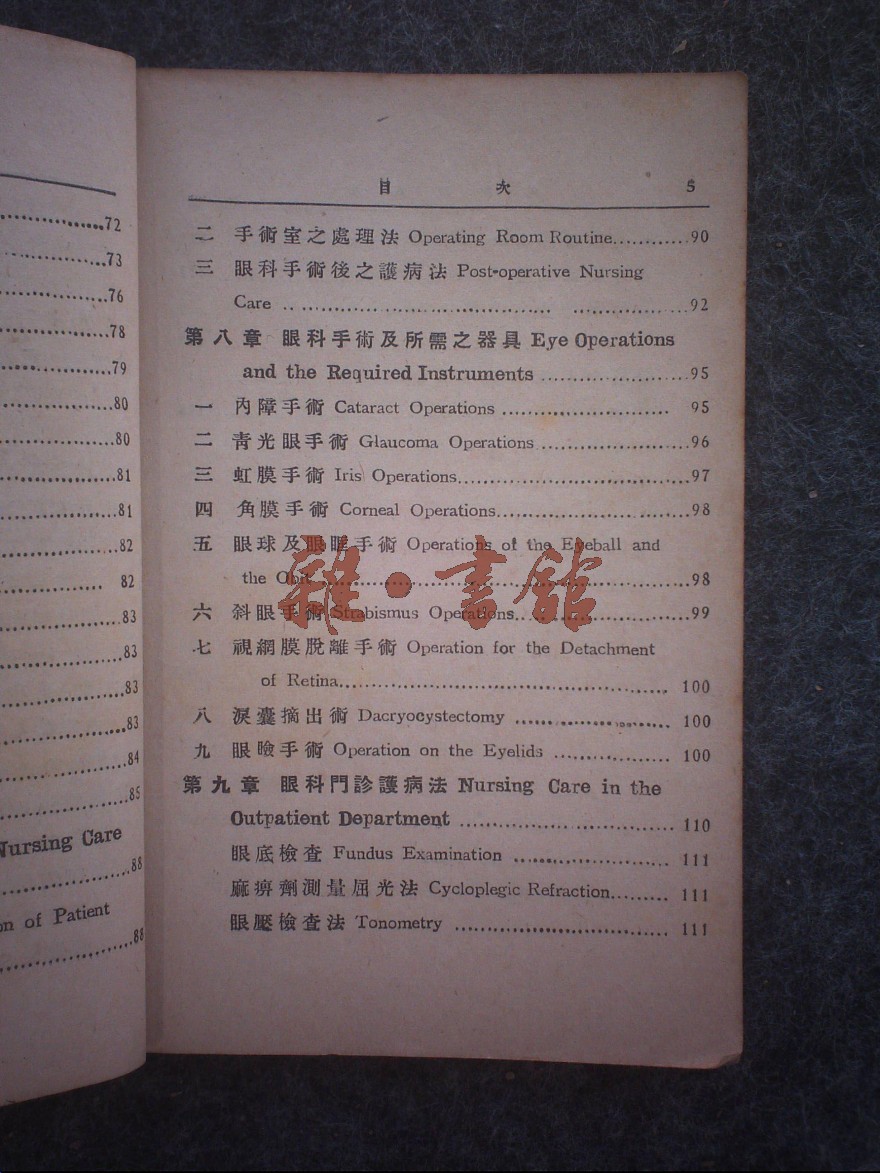 72
73
76
78
79
80
80
81
81
82
82
83
83
83
83
84
85
Nursing Care
88
on of Patient
88
目 次 5
二 手術室之處理法 Operating Room Routine............90
三 眼科手術後之護病法 Post-operative Nursing
Care .. .................................... ..................92
第八章 眼科手術及所需之器具 Eye Operations
and the Required Instruments ....................95
一 內障手術 Cataract Operations ........................ 95
二 青光眼手術 Glaucoma Operations......................96
三 虹膜手術 Iris Operations..................................97
四 角膜手術 Corneal Operations............................98
五 眼球及眼眶手術 Operations of the Eyeball and
the Obit ....................................................98
六 斜眼手術 Strabismus Operations..........................99
七 視網膜脫離手術 Operation for the Detachment
of Retina................................................ 100
八 淚囊摘出術 Dacryocystectomy ...................... 100
九 眼瞼手術 Operation on the Eyelids ................ 100
第九章 眼科門診護病法 Nursing Care in the
Outpatient Department .............................. 110
眼底檢查 Fundus Examination ...................... 111
麻痹劑測量屈光法 Cycloplegic Refraction......... 111
眼壓檢查法 Tonometry ................................ 111
雜·書館